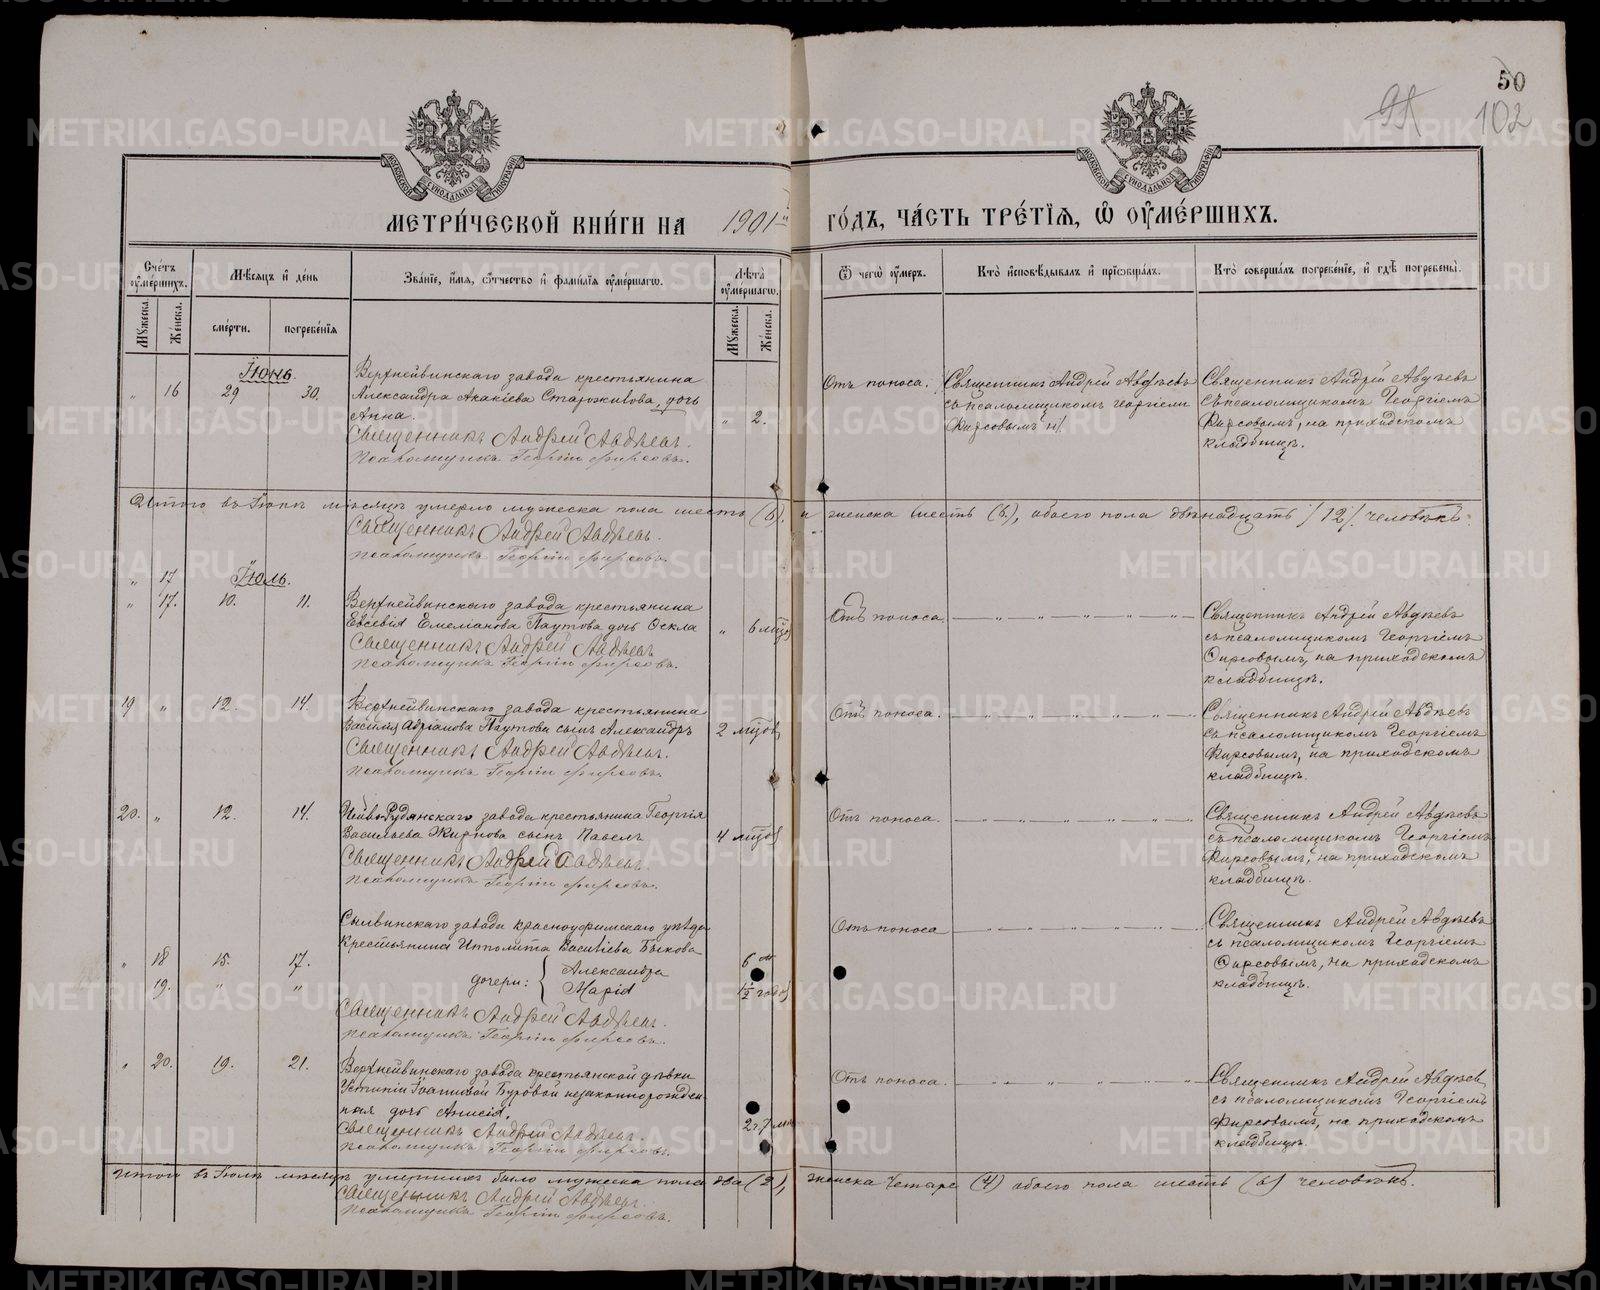 50
102
МЕТРИЧЕСКОЙ КНИГИ НА 1901й ГОДЪ, ЧАСТЬ ТРЕТІЯ, Ѡ ОУМЕРШИХЪ.
Счетъ оумершихъ.
Мѣсяцъ и день
Званіе, имя, отчество и фамилія оумершагѡ.
Лѣта оумершагѡ.
Ѿ чегѡ оумеръ.
Кто исповѣдывалъ и пріобщалъ.
Кто совершалъ погребеніе, и гдѣ погребены.
Мужеска. Женска. смерти. погребенія Мужеска. Женска.
Іюнь.
" 16 29 30.
Верхнейвинскаго завода крестьянина
Александра Акакіева Старожилова, дочь
Анна.
" 2.
Священникъ Андрей Авдѣевъ.
Псаломщикъ Георгій Фирсовъ.
Отъ поноса.
Священникъ Андрей Авдѣевъ
съ псаломщикомъ Георгіем
Фирсовымъ
Священникъ Андрей Авдѣевъ
съ псаломщикомъ Георгіемъ
Фирсовымъ, на приходскомъ
кладбищѣ.
Итого въ Іюнѣ мѣсяцѣ умерло мужеска пола шесть (6), и женска шесть (6), обоего пола двѣнадцать /12/ человѣкъ.
Священникъ Андрей Авдѣевъ.
Псаломщикъ Георгій Фирсовъ.
" 17 Іюль.
" 17. 10. 11.
Верхнейвинскаго завода крестьянина
Евсевія Емеліанова Паутова дочь Ѳекла
" 6 мѣс
Священникъ Андрей Авдѣевъ
Псаломщикъ Георгій Фирсовъ.
Отъ поноса.
Священникъ Андрей Авдѣевъ
съ псаломщикомъ Георгіемъ
Фирсовымъ, на приходскомъ
кладбищѣ.
19 " 12. 14.
Верхнейвинскаго завода крестьянина
Василія Адріанова Паутова сынъ Александръ
2 мѣсов
Священникъ Андрей Авдѣевъ.
Псаломщикъ Георгій Фирсовъ.
Отъ поноса.
Священникъ Андрей Авдѣевъ
съ псаломщикомъ Георгіемъ
Фирсовымъ, на приходскомъ
кладбищѣ.
20. " 12. 14.
Нейво-Рудянскаго завода крестьянина Георгія
Васильева Жирнова сынъ Павелъ
4 мѣсов
Священникъ Андрей Авдѣевъ.
Псаломщикъ Георгій Фирсовъ.
Отъ поноса.
Священникъ Андрей Авдѣевъ
съ псаломщикомъ Георгіемъ
Фирсовымъ, на приходскомъ
кладбищѣ.
Сылвинскаго завода красноуфимскаго уѣзда
крестьянина Ипполита Василіева Быкова
дочери:
" 18 15. 17. Александра 6 м
19. " " Марія 1½ года
Священникъ Андрей Авдѣевъ.
Псаломщикъ Георгій Фирсовъ.
Отъ поноса
Священникъ Андрей Авдѣевъ
съ псаломщикомъ Георгіемъ
Фирсовымъ, на приходскомъ
кладбищѣ.
" 20. 19. 21.
Верхнейвинскаго завода крестьянской дѣвки
Устиніи Іоанновой Буровой незаконнорожден-
ная дочь Анисія.
2 г. 7 м
Священникъ Андрей Авдѣевъ.
Псаломщикъ Георгій Фирсовъ.
Отъ поноса.
Священникъ Андрей Авдѣевъ
съ псаломщикомъ Георгіемъ
Фирсовымъ, на приходскомъ
кладбищѣ.
Итого въ Іюлѣ мѣсяцѣ умершихъ было мужеска пола два (2), женска четыре (4) обоего пола шесть (6) человѣкъ.
Священникъ Андрей Авдѣевъ.
Псаломщикъ Георгій Фирсовъ.
METRIKI.GASO-URAL.RU